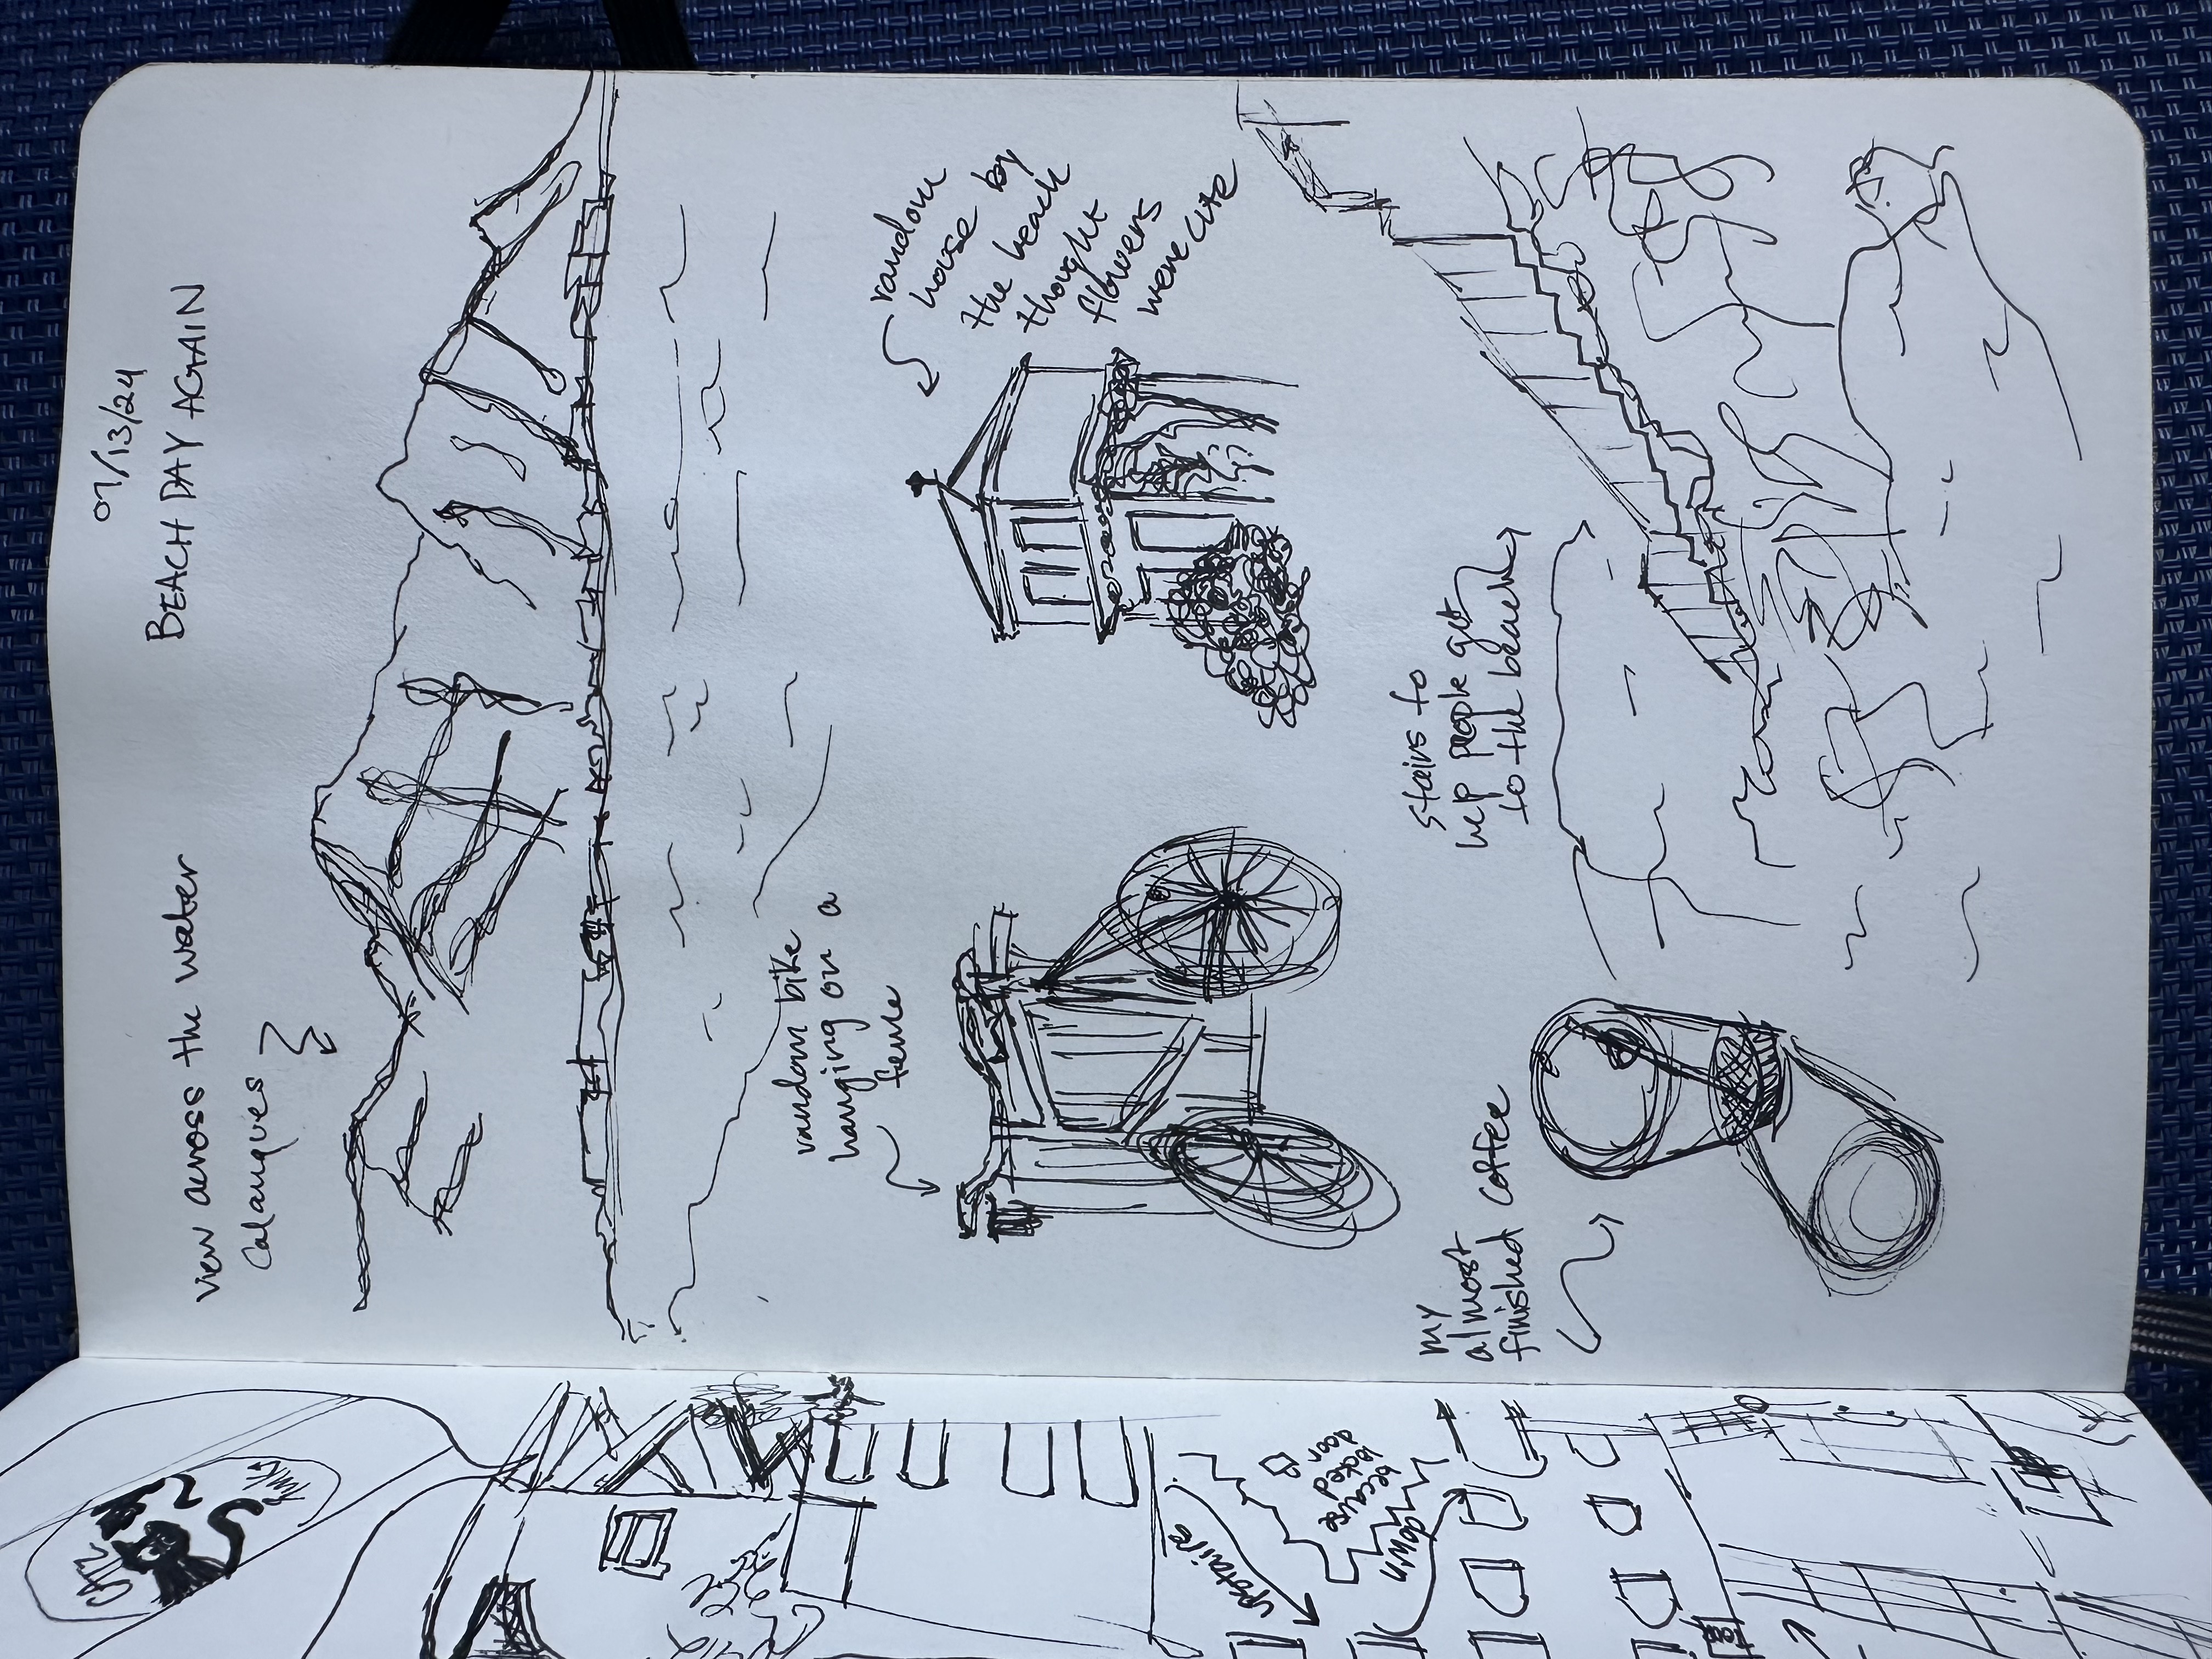 CATZ
upstairs
down
07/13/24
BEACH DAY AGAIN
view across the water
Calanques
random bike
hanging on a
fence
random
house by
the beach
thought
flowers
were cute
my
almost
finished coffee
stairs to
help people get
to the beach